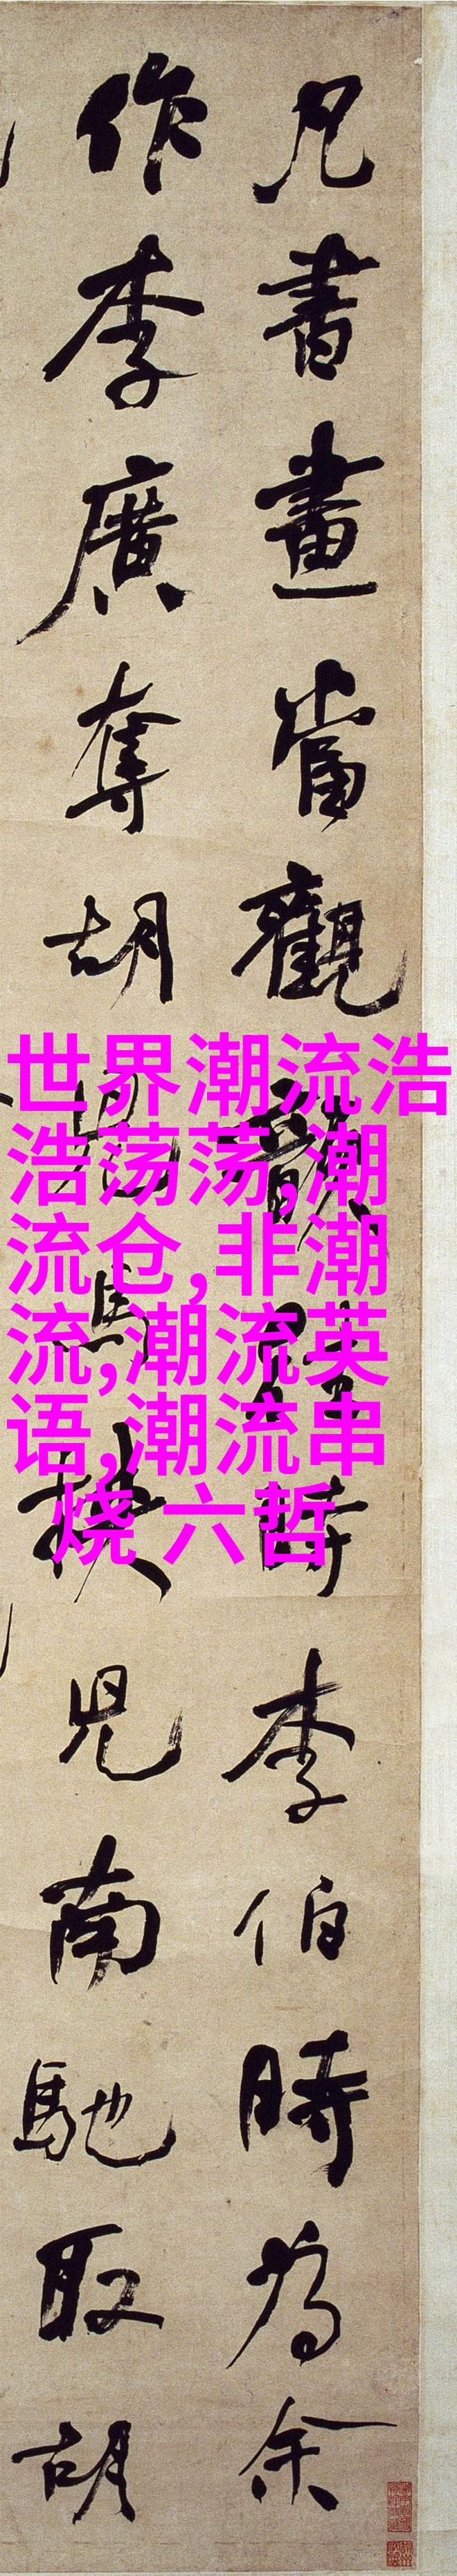 凡書畫當觀韻往時李伯時為余
作李廣奪胡兒馬挾兒南馳取胡
世界潮流浩
浩荡荡,潮
流仓,非潮
流,潮流英
语,潮流串
烧 六哲